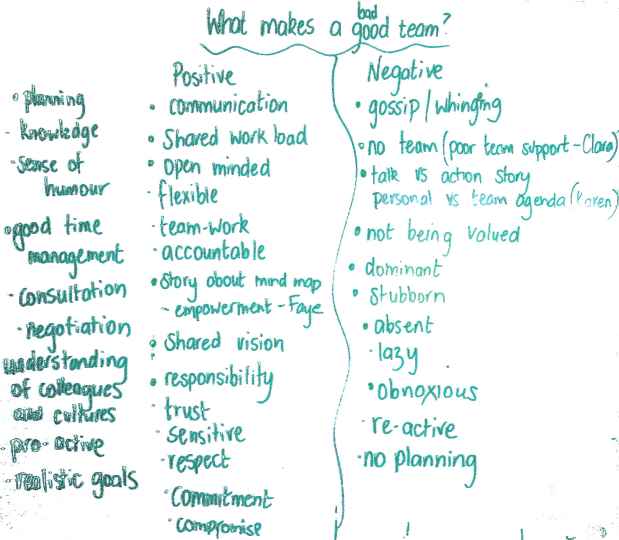 What makes a good team?
bad
Positive
• communication
• Shared work load
• Open minded
- flexible
- team-work
- accountable
• Story about mind map
- empowerment - Faye
• Shared vision
• responsibility
- trust
- sensitive
- respect
Commitment
- compromise
• planning
- knowledge
- sense of
humour
• good time
management
- consultation
- negotiation
understanding
of colleagues
and cultures
- pro-active
- realistic goals
Negative
• gossip / whinging
• no team (poor team support - Clara)
• talk vs action story
personal vs team agenda (Karen)
• not being valued
• dominant
• stubborn
• absent
- lazy
• obnoxious
- re-active
- no planning